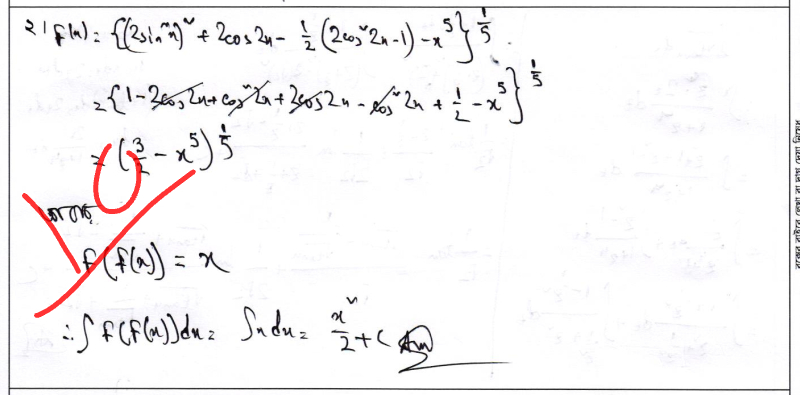 ২। f(x) = {(2sin²x)² + 2cos2x - 1/2 (2cos²2x-1) - x⁵}^1/5
= {1-2cos2x+cos²2x+2cos2x-cos²2x + 1/2 - x⁵}^1/5
= (3/2 - x⁵)^1/5
f(f(x)) = x
∴ ∫ f(f(x))dx = ∫x dx = x²/2 + c Ans